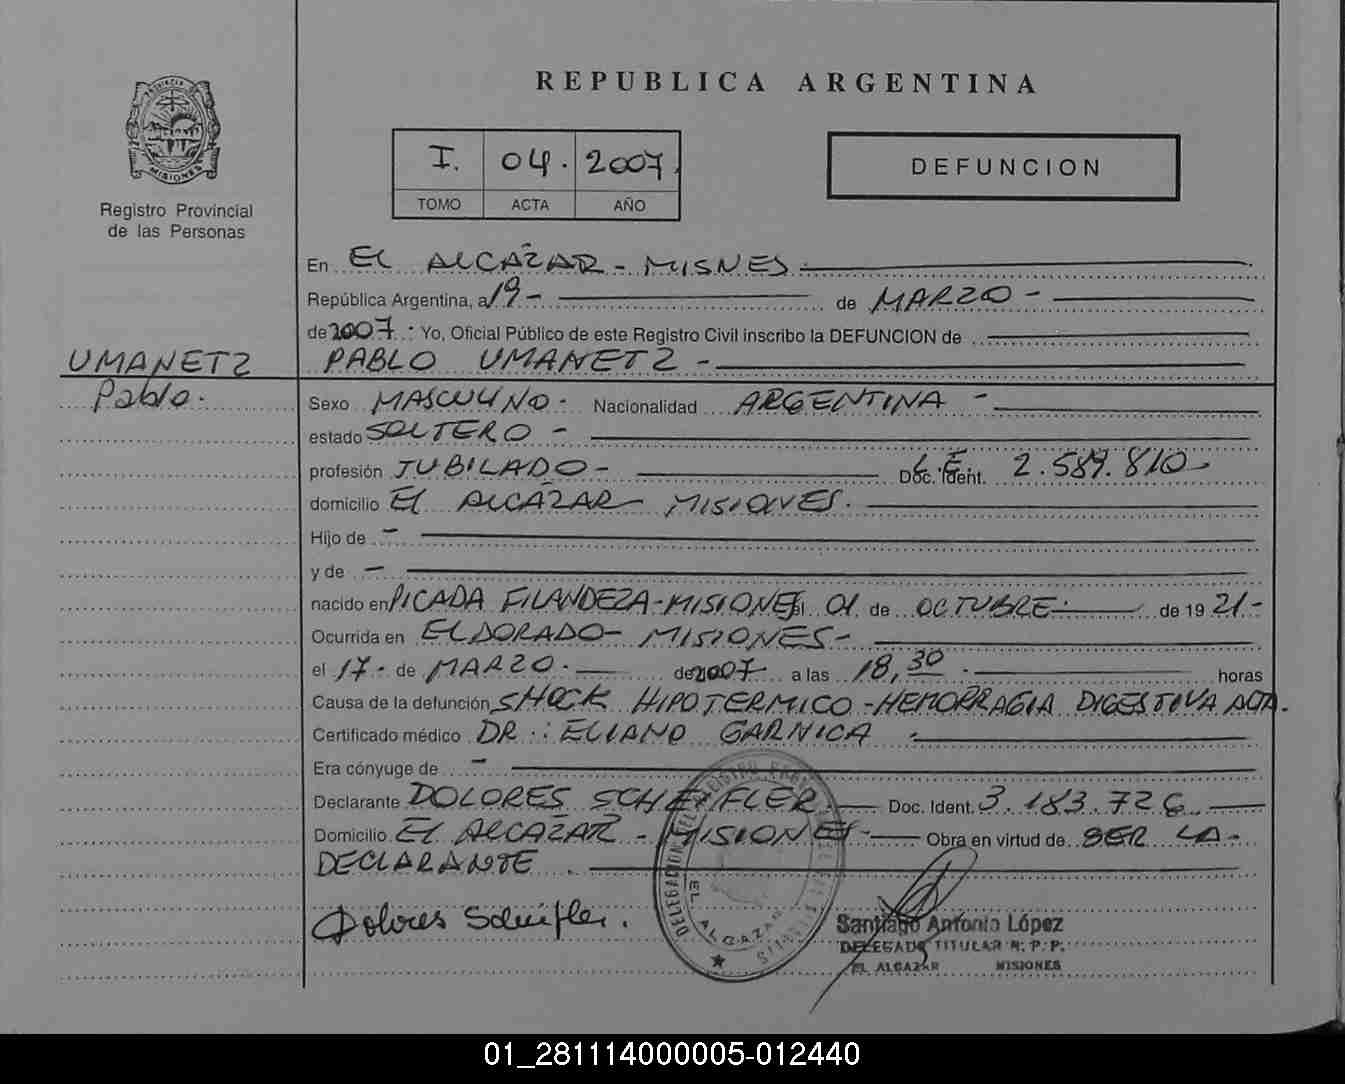 REPUBLICA ARGENTINA
PROVINCIA DE
MISIONES
Registro Provincial
de las Personas
I. 04. 2007.
TOMO ACTA AÑO
DEFUNCION
En EL ALCAZAR - MISNES.
República Argentina, a 19 - de MARZO -
de 2007. Yo, Oficial Público de este Registro Civil inscribo la DEFUNCION de
UMANETZ
Pablo.
PABLO UMANETZ -
Sexo MASCULINO - Nacionalidad ARGENTINA -
estado SOLTERO -
profesión JUBILADO - Doc. Ident. L.E. 2.589.810 -
domicilio EL ALCAZAR - MISIONES.
Hijo de -
y de -
nacido en PICADA FILANDEZA - MISIONES el 01 de OCTUBRE. de 19 21.-
Ocurrida en ELDORADO - MISIONES -
el 17 - de MARZO. de 2007 a las 18,30 . horas
Causa de la defunción SHOCK HIPOTERMICO - HEMORRAGIA DIGESTIVA ALTA.
Certificado médico DR : ELIANO GARNICA .
Era cónyuge de -
Declarante DOLORES SCHEIFLER. Doc. Ident. 3.183.726
Domicilio EL ALCAZAR - MISIONES - Obra en virtud de SER LA -
DECLARANTE .
Dolores Scheifler.
DELEGACION DEL REGISTRO
EL ALCAZAR
Santiago Antonio López
DELEGADO TITULAR R. P. P.
EL ALCAZAR MISIONES
01_281114000005-012440